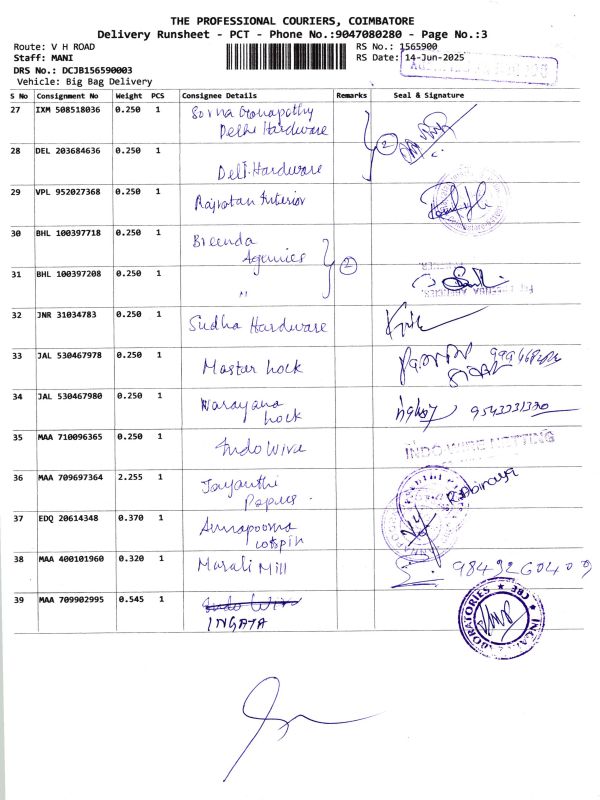 THE PROFESSIONAL COURIERS, COIMBATORE
Delivery Runsheet - PCT - Phone No.:9047080280 - Page No.:3
Route: V H ROAD RS No.: 1565900
Staff: MANI RS Date: 14-Jun-2025
DRS No.: DCJB156590003
Vehicle: Big Bag Delivery
S No Consignment No Weight PCS Consignee Details Remarks Seal & Signature
27 IXM 508518036 0.250 1
Delhi Hardware
2
28 DEL 203684636 0.250 1
Hardware
29 VPL 952027368 0.250 1 Rajratan Interior
30 BHL 100397718 0.250 1 Breenda
Agencies
2
31 BHL 100397208 0.250 1 "
32 JNR 31034783 0.250 1 Sudha Hardware
33 JAL 530467978 0.250 1 Master Lock
34 JAL 530467980 0.250 1 Narayana
Lock
35 MAA 710096365 0.250 1 Indo Wire
INDO WIRE NETTING
36 MAA 709697364 2.255 1 Jayanthi
Papers
37 EDQ 20614348 0.370 1 Annapoorna
cotspin
38 MAA 400101960 0.320 1 Murali Mill
39 MAA 709902995 0.545 1 Indo Wire
INGATA